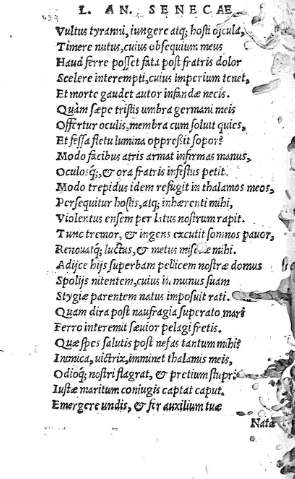 L. AN. SENECAE
Vultus tyranni, iungere atq; hosti oscula,
Timere nutus, cuius obsequium meus
Haud ferre posset fata post fratris dolor
Scelere interempti, cuius imperium tenet,
Et morte gaudet autor infandæ necis.
Quàm sæpe tristis umbra germani meis
Offertur oculis, membra cum soluit quies,
Et fessa fletu lumina oppreßit sopor?
Modo facibus atris armat infirmas manus,
Oculosq;, & ora fratris infestus petit.
Modo trepidus idem refugit in thalamos meos,
Persequitur hostis, atq; inhærenti mihi,
Violentus ensem per latus nostrum rapit.
Tunc tremor, & ingens excutit somnos pauor,
Renouatq; luctus, & metus miseræ mihi.
Adijce hijs superbam pellicem nostræ domus
Spolijs nitentem, cuius in munus suam
Stygiæ parentem natus imposuit rati.
Quam dira post naufragia superato mari
Ferro interemit sæuior pelagi fretis.
Quæ spes salutis post nefas tantum mihi?
Inimica, uictrix, imminet thalamis meis,
Odioq; nostri flagrat, & pretium stupri
Iustæ maritum coniugis captat caput.
Emergere undis, & fer auxilium tuæ
Natæ